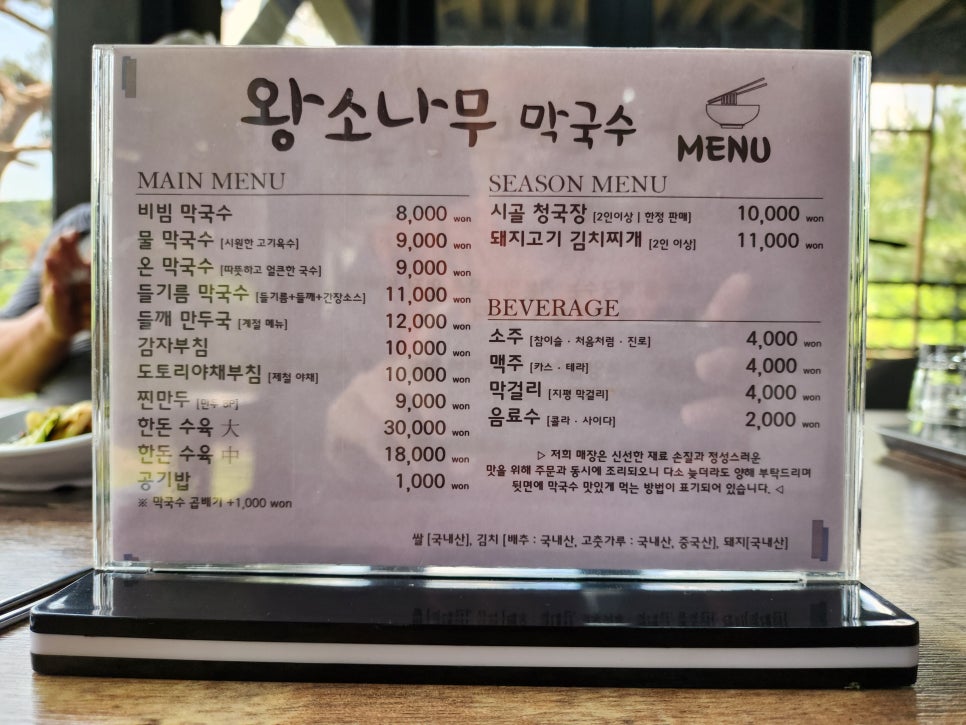 왕소나무 막국수
MENU
MAIN MENU
비빔 막국수 8,000 won
물 막국수 [시원한 고기육수] 9,000 won
온 막국수 [따뜻하고 얼큰한 국수] 9,000 won
들기름 막국수 [들기름+들깨+간장소스] 11,000 won
들깨 만두국 [계절 메뉴] 12,000 won
감자부침 10,000 won
도토리야채부침 [제철 야채] 10,000 won
찐만두 [만두 8P] 9,000 won
한돈 수육 大 30,000 won
한돈 수육 中 18,000 won
공기밥 1,000 won
※ 막국수 곱빼기 +1,000 won
SEASON MENU
시골 청국장 [2인이상 | 한정 판매] 10,000 won
돼지고기 김치찌개 [2인 이상] 11,000 won
BEVERAGE
소주 [참이슬 · 처음처럼 · 진로] 4,000 won
맥주 [카스 · 테라] 4,000 won
막걸리 [지평 막걸리] 4,000 won
음료수 [콜라 · 사이다] 2,000 won
▷ 저희 매장은 신선한 재료 손질과 정성스러운
맛을 위해 주문과 동시에 조리되오니 다소 늦더라도 양해 부탁드리며
뒷면에 막국수 맛있게 먹는 방법이 표기되어 있습니다. ◁
쌀 [국내산], 김치 [배추 : 국내산, 고춧가루 : 국내산, 중국산], 돼지[국내산]